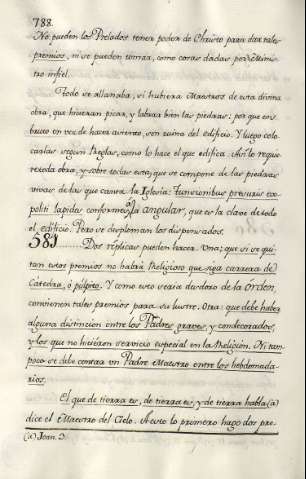 788.
No pueden los Prelados tener poder de Christo para dar tales
premios, ni se pueden tomar, como cosas dadas por Minis-
tro infiel.
Todo se allanaba, si hubiera Maestros de esta divina
obra, que hizieran picar, y labrar bien las piedras; porque en
bruto en vez de hacer asiento, son ruina del edificio. Y luego colo-
carlas segun Reglas, como lo hace el que edifica. Asi lo requie-
re toda obra, y sobre todas esta, que se compone de las piedras
vivas de las que canta la Iglesia: Tunsionibus pressuris ex-
politi lapides conformes a la angular, que es la clave de todo
el edificio. Pero se desploman los dispensados.
581 Dos réplicas pueden hacer. Una; que si se qui-
tan estos premios no habrá Religioso que siga carrera de
Catedra, ó pulpito. Y como esto sería desdoro de la Orden,
convienen tales premios para su lustre. Otra: que debe haber
alguna distincion entre los Padres graves, y condecorados,
y los que no hicieron servicio especial en la Religion. Ni tam-
poco se debe contar un Padre Maestro entre los hebdomada-
rios.
El que de tierra es, de tierra es, y de tierra habla (a)
dice el Maestro del Cielo. A esto lo primero hago dos pre-
(a) Joan. 3.